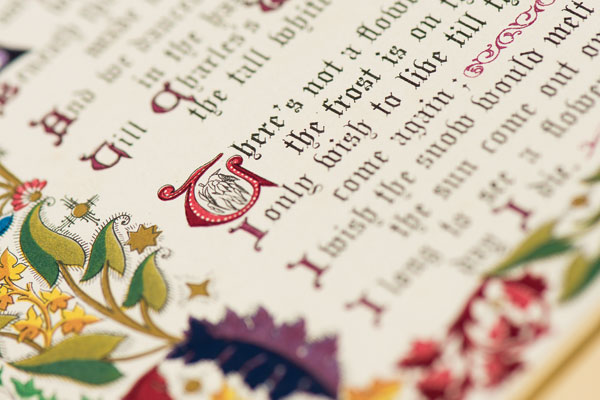 make
And we dance
in the ha
Till Charles's
the tall white
There's not a flowe
the frost is on t
I only wish to live till t
come again:
I wish the snow would melt
the sun come out o
I long to see a flowe
day I die.